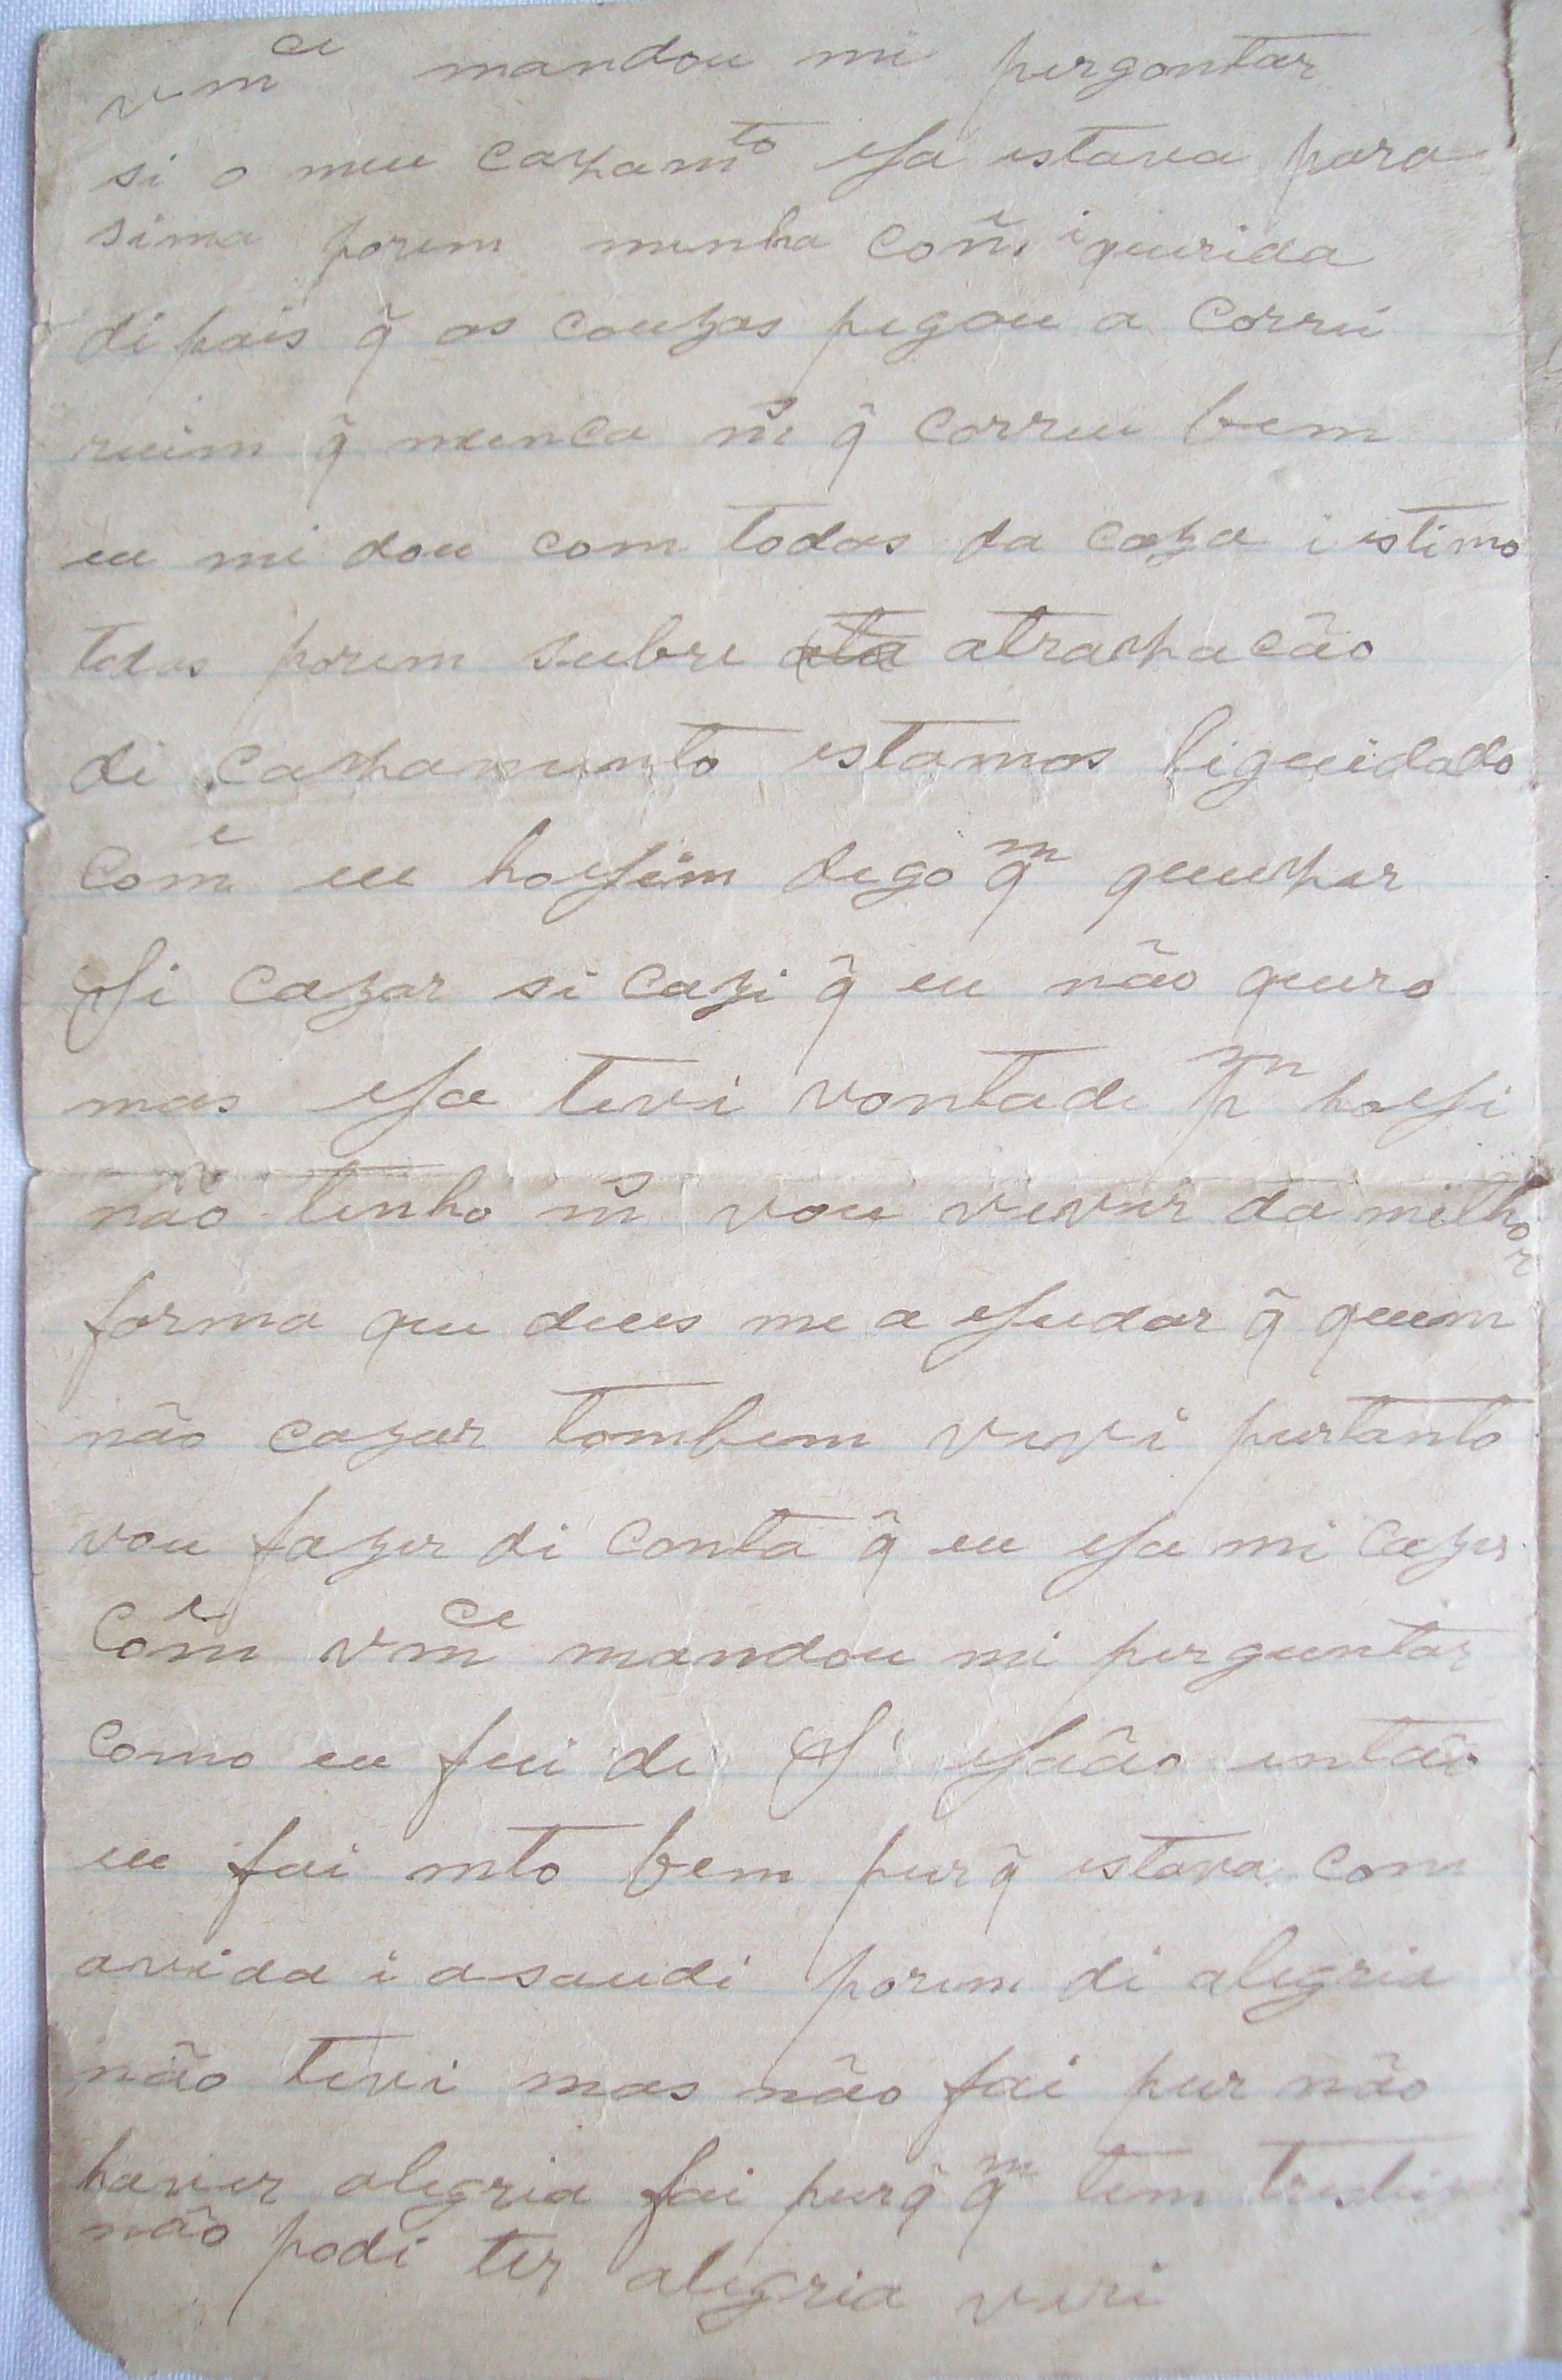 vm^ce mandou mi pergontar
si o meu cazam^to Ja estava para
sima porem minha com^e i quirida
di pois q̃ as couzas pegou a corrẽ
ruim q̃ nunca m^s q̃ correu bem
eu mi dou com todos da caza i estimo
todos porem subre atrapacão
di cazamento estamos liguidado
Com^e eu hoJem digo q^m quizer
Si cazar si cazi q̃ eu não quero
mas Ja tivi vontade p^m hoJi
não tenho m^s vou viver da milhor
forma que deus me a Judar q̃ quem
não cazar tombem vivi purtanto
vou fazer di conta q̃ eu Ja mi cazei
Com^e vm^ce mandou mi perguntar
como eu fui de S. João então
eu fui mto bem purq̃ estava com
avida i a saudi porem di alegria
não tivi mas não foi pur não
haver alegria foi purq̃ q^m tem
não podi ter alegria